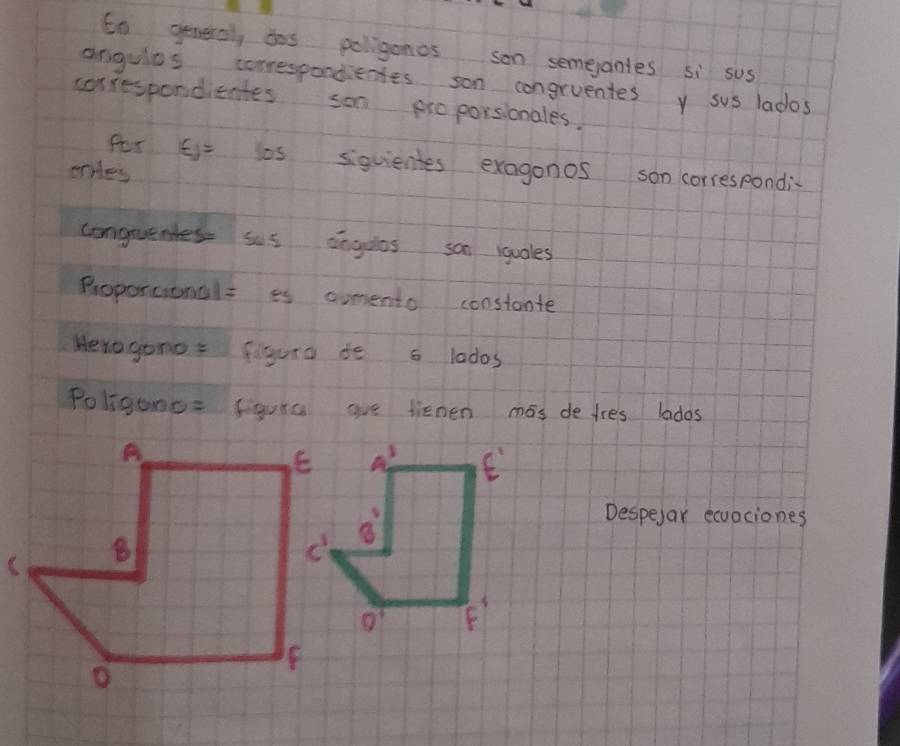 En general, dos poligonos son semejantes si sus
angulos correspondientes son congruentes y sus lados
correspondientes son proporsionales.
Por Ej= los siguientes exagonos son correspondi-
entes
congruentes= sus ángulos son iguales
Proporcional= es aumento constante
Hexagono= figura de 6 lados
Poligono= figura que tienen más de tres lados
A E A' E'
Despejar ecuaciones
B B'
C C'
D F D' F'